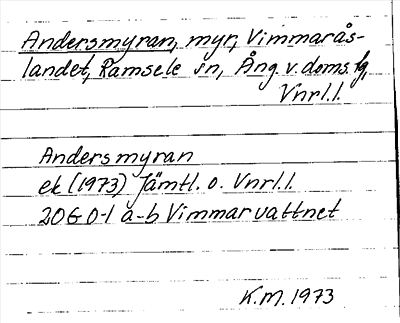 Andersmyran, myr, Vimmarås-
landet, Ramsele sn, Ång. v. doms. fg,
Vnrl. l.
Andersmyran
ek (1973) Jämtl. o. Vnrl. l.
20G 0-1 a-b Vimmarvattnet
K.M. 1973